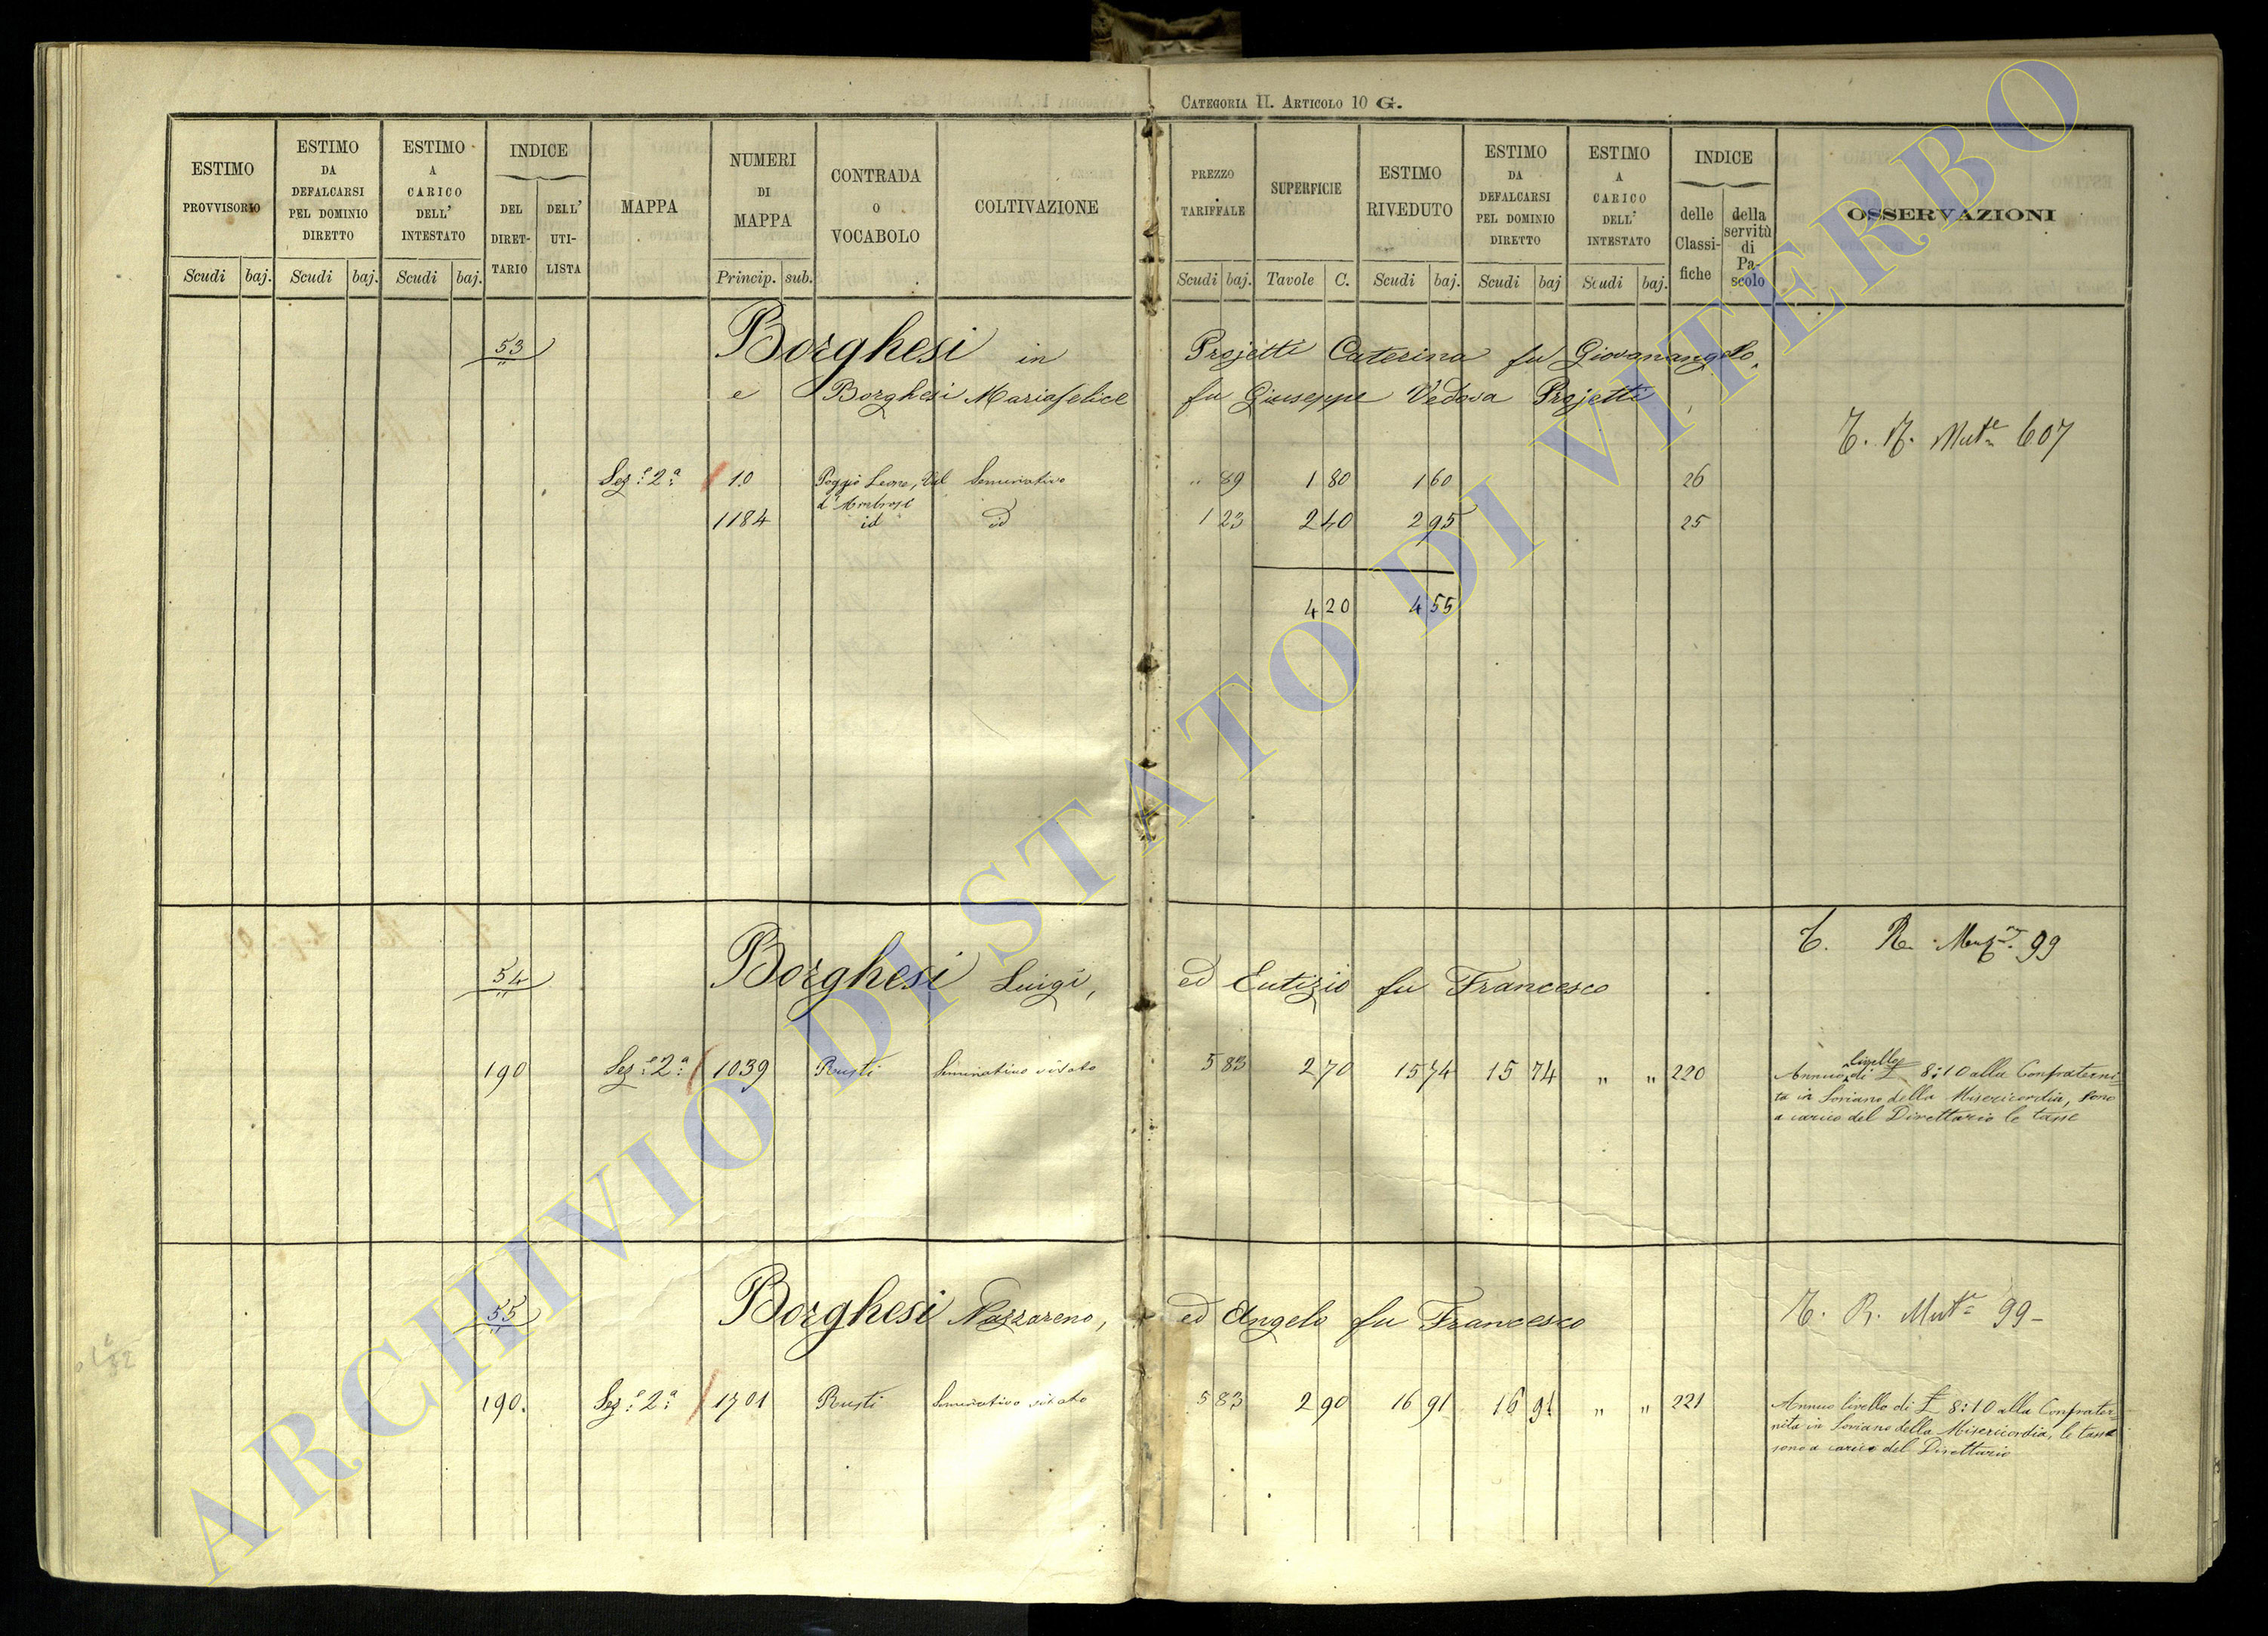 CATEGORIA II. ARTICOLO 10 G.
ESTIMO PROVVISORIO
ESTIMO DA DEFALCARSI PEL DOMINIO DIRETTO
ESTIMO A CARICO DELL' INTESTATO
INDICE
DEL DIRET-TARIO
DELL' UTI-LISTA
MAPPA
NUMERI DI MAPPA
CONTRADA O VOCABOLO
COLTIVAZIONE
PREZZO TARIFFALE
SUPERFICIE
ESTIMO RIVEDUTO
ESTIMO DA DEFALCARSI PEL DOMINIO DIRETTO
ESTIMO A CARICO DELL' INTESTATO
INDICE
delle Classi-fiche
della servitù di Pa-scolo
OSSERVAZIONI
Scudi baj. Scudi baj. Scudi baj. Princip. sub. Scudi baj. Tavole C. Scudi baj. Scudi baj Scudi baj.
53 Borghesi in Projetti Caterina fu Giovanangelo,
e Borghesi Mariafelice fu Giuseppe Vedova Projetti
607
Sez.e 2a 10 Poggio Leone, Val Seminativo " 89 1 80 1 60 26
d'Ambrosi
1184 id id 1 23 2 40 2 95 25
4 20 4 55
C. R. 99
54 Borghesi Luigi, ed Eutizio fu Francesco
190 Sez.e 2a 1039 Rusti Seminativo vitato 5 83 2 70 15 74 15 74 " " 220
Annuo livello di £ 8:10 alla Confraterni-
ta in Soriano della Misericordia, sono
a carico del Direttario le tasse
55 Borghesi Nazzareno, ed Angelo fu Francesco
R. Mut.e 99
190. Sez.e 2a 1701 Rusti Seminativo vitato 5 83 2 90 16 91 16 91 " " 221
Annuo livello di £ 8:10 alla Confrater-
nita in Soriano della Misericordia, le tasse
sono a carico del Direttario
ARCHIVIO DI STATO DI VITERBO